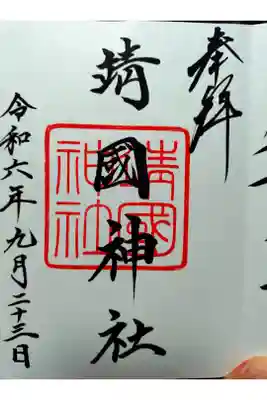 奉拝
靖國神社
靖國神社
令和六年九月二十三日